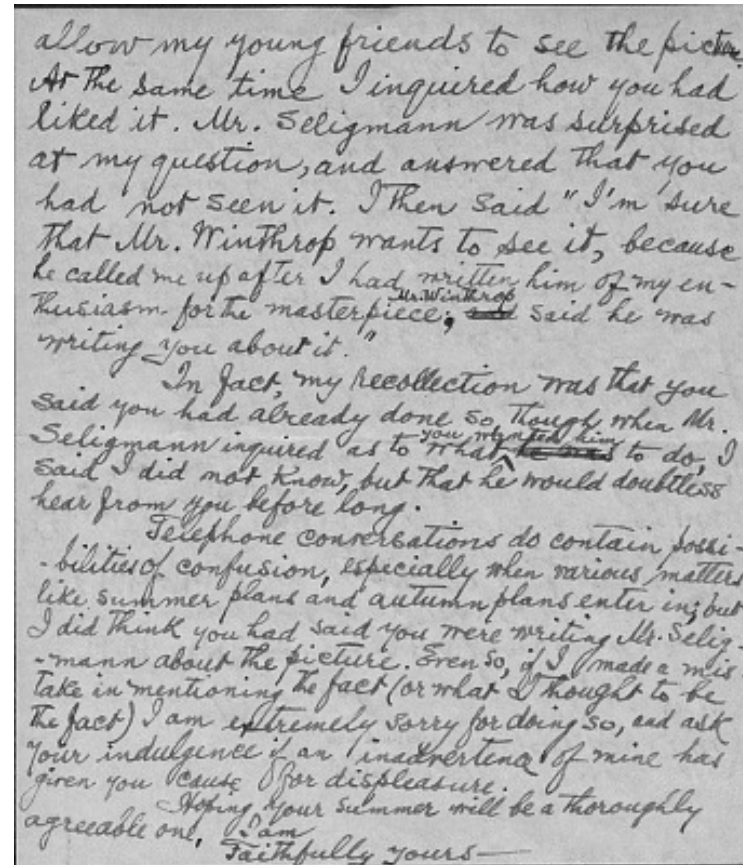 allow my young friends to see the picture.
At the same time I inquired how you had
liked it. Mr. Seligmann was surprised
at my question, and answered that you
had not seen it. I then said "I'm sure
that Mr. Winthrop wants to see it, because
he called me up after I had written him of my en-
thusiasm for the masterpiece; Mr. Winthrop said he was
writing you about it."
In fact, my recollection was that you
said you had already done so, though when Mr.
Seligmann inquired as to what you wanted him to do, I
said I did not know, but that he would doubtless
hear from you before long.
Telephone conversations do contain possi-
-bilities of confusion, especially when various matters
like summer plans and autumn plans enter in; but
I did think you had said you were writing Mr. Selig-
-mann about the picture. Even so, if I made a mis
take in mentioning the fact (or what I thought to be
the fact) I am extremely sorry for doing so, and ask
your indulgence if an inadvertence of mine has
given you cause for displeasure.
Hoping your summer will be a thoroughly
agreeable one, I am
Faithfully yours—